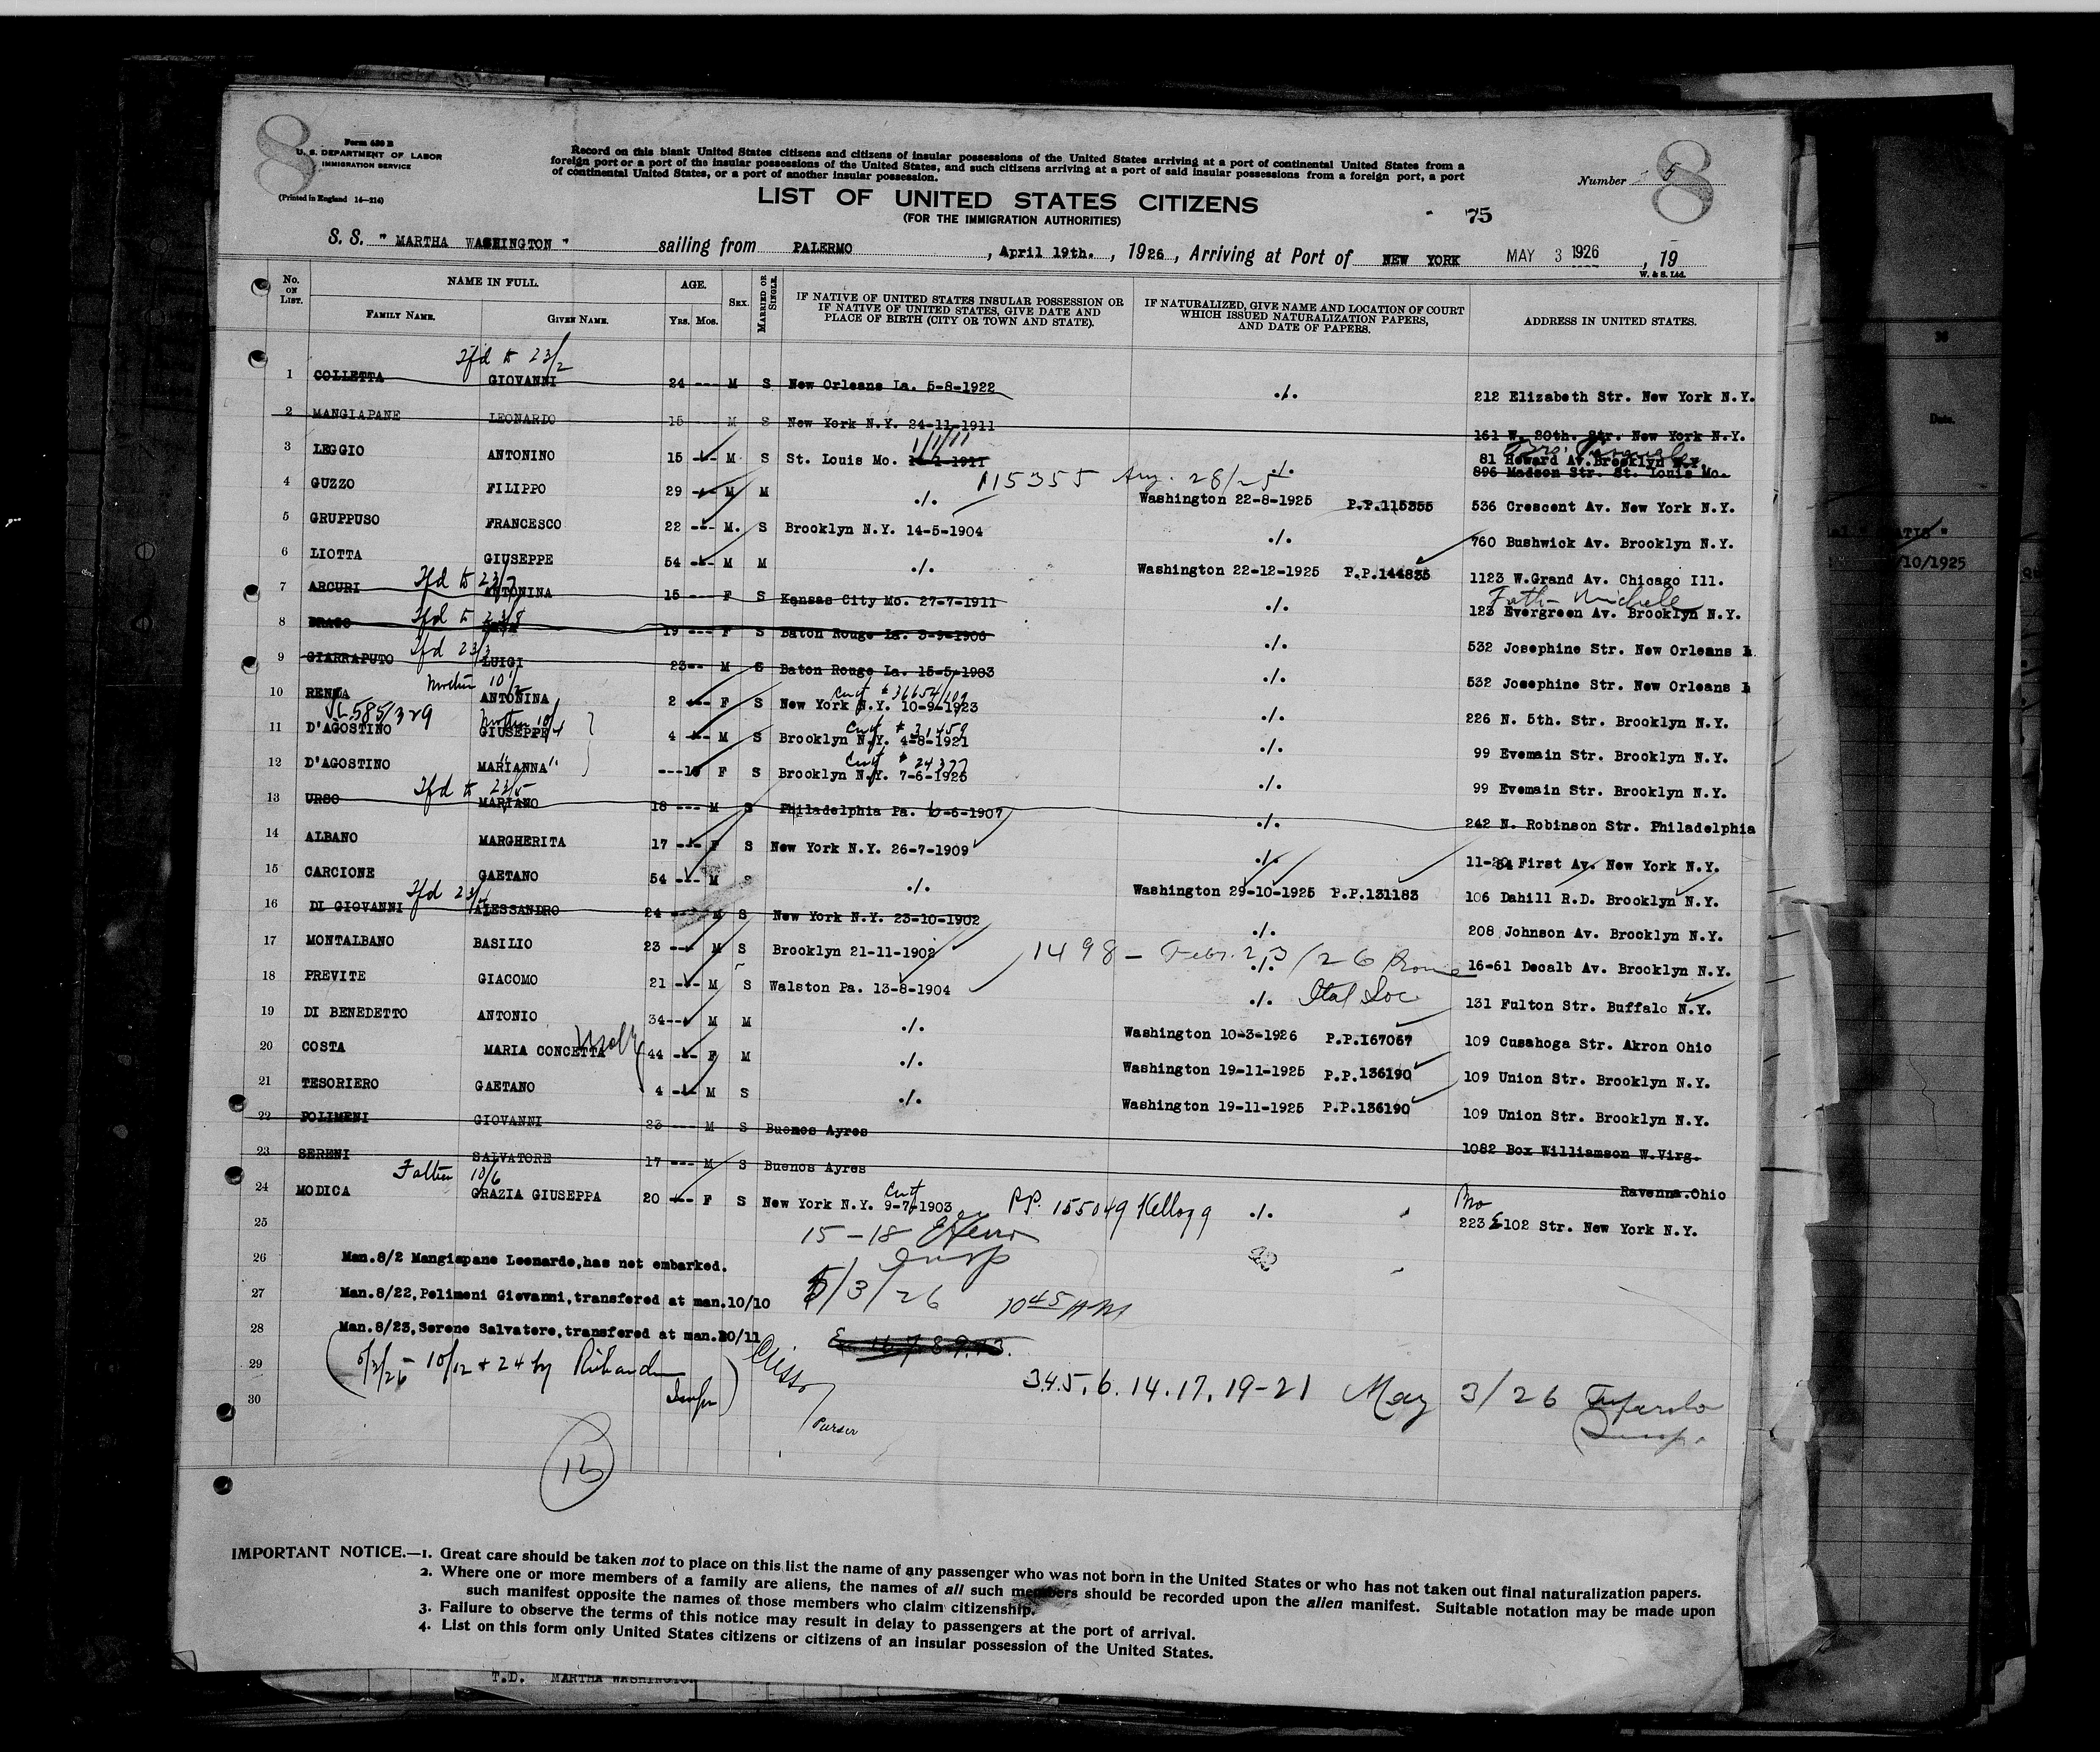 8
8
Form 630 B
U. S. DEPARTMENT OF LABOR
IMMIGRATION SERVICE
(Printed in England 14—214)
Record on this blank United States citizens and citizens of insular possessions of the United States arriving at a port of continental United States from a
foreign port or a port of the insular possessions of the United States, and such citizens arriving at a port of said insular possessions from a foreign port, a port
of continental United States, or a port of another insular possession.
Number 5
LIST OF UNITED STATES CITIZENS
(FOR THE IMMIGRATION AUTHORITIES)
75
S. S. " MARTHA WASHINGTON " sailing from PALERMO, April 19th., 1926, Arriving at Port of NEW YORK MAY 3 1926, 19
W. & S. Ltd.
No. ON LIST. NAME IN FULL. FAMILY NAME. GIVEN NAME. AGE. Yrs. Mos. SEX. MARRIED OR SINGLE. IF NATIVE OF UNITED STATES INSULAR POSSESSION OR IF NATIVE OF UNITED STATES, GIVE DATE AND PLACE OF BIRTH (CITY OR TOWN AND STATE). IF NATURALIZED, GIVE NAME AND LOCATION OF COURT WHICH ISSUED NATURALIZATION PAPERS, AND DATE OF PAPERS. ADDRESS IN UNITED STATES.
Tfd to 23/2
1 COLLETTA GIOVANNI 24 --- M S New Orleans La. 5-8-1922 ./. 212 Elizabeth Str. New York N.Y.
2 MANGIAPANE LEONARDO 15 --- M S New York N.Y. 24-11-1911 161 W. 20th. Str. New York N.Y.
1/1/11
3 LEGGIO ANTONINO 15 --- M S St. Louis Mo. ./. 81 Howard Av. Brooklyn N.Y.
896 Madson Str. St. Louis Mo.
115355 Aug. 28/25
4 GUZZO FILIPPO 29 --- M M ./. Washington 22-8-1925 P.P.115355 536 Crescent Av. New York N.Y.
5 GRUPPUSO FRANCESCO 22 --- M. S Brooklyn N.Y. 14-5-1904 ./. 760 Bushwick Av. Brooklyn N.Y.
6 LIOTTA GIUSEPPE 54 --- M M ./. Washington 22-12-1925 P.P.144835 1123 W.Grand Av. Chicago Ill.
Tfd to 23/7 Fath- Michele
7 ARCURI ANTONINA 15 --- F S Kansas City Mo. 27-7-1911 ./. 123 Evergreen Av. Brooklyn N.Y.
Tfd to 23/8
8 19 --- F S Baton Rouge La. 3-9-1906 ./. 532 Josephine Str. New Orleans
Tfd 23/3
9 GIARRAPUTO LUIGI 23-- M S Baton Rouge La. 15-5-1903 ./. 532 Josephine Str. New Orleans
Mother 10/ Cert # 36654/109
10 RENDA ANTONINA 2 --- F S New York N.Y. 10-9-1923 ./. 226 N. 5th. Str. Brooklyn N.Y.
585/329 Mother 10/4 Cert # 31459
11 D'AGOSTINO GIUSEPPE 4 --- M S Brooklyn N.Y. 4-8-1921 ./. 99 Evemain Str. Brooklyn N.Y.
Cert # 24377
12 D'AGOSTINO MARIANNA " " ---10 F S Brooklyn N.Y. 7-6-1925 ./. 99 Evemain Str. Brooklyn N.Y.
Tfd to 23/5
13 URSO MARIANO 18 --- M S Philadelphia Pa. 6-6-1907 ./. 242 N. Robinson Str. Philadelphia
14 ALBANO MARGHERITA 17 --- F S New York N.Y. 26-7-1909 ./. First Av. New York N.Y.
15 CARCIONE GAETANO 54 --- M S ./. Washington 29-10-1925 P.P.131183 106 Dahill R.D. Brooklyn N.Y.
Tfd 23/
16 DI GIOVANNI ALESSANDRO 24 --- M S New York N.Y. 23-10-1902 ./. 208 Johnson Av. Brooklyn N.Y.
1498 - Febr. 23/26 Rome
17 MONTALBANO BASILIO 23 --- M S Brooklyn 21-11-1902 ./. 16-61 Decalb Av. Brooklyn N.Y.
Ital Soc
18 PREVITE GIACOMO 21 --- M S Walston Pa. 13-8-1904 ./. 131 Fulton Str. Buffalo N.Y.
19 DI BENEDETTO ANTONIO 34--- M M ./. Washington 10-3-1926 P.P.167067 109 Cusahoga Str. Akron Ohio
20 COSTA MARIA CONCETTA 44 --- F M ./. Washington 19-11-1925 P.P.136190 109 Union Str. Brooklyn N.Y.
21 TESORIERO GAETANO 4 --- M S ./. Washington 19-11-1925 P.P.136190 109 Union Str. Brooklyn N.Y.
22 POLIMENI GIOVANNI 23 --- M S Buenos Ayres 1082 Box Williamson W.Virg.
23 SERENI SALVATORE 17 --- M S Buenos Ayres Ravenna.Ohio
Father 10/6 Cert Bro
24 MODICA GRAZIA GIUSEPPA 20 --- F S New York N.Y. 9-7-1903 P.P. 155049 Kellogg ./. 223 E 102 Str. New York N.Y.
25 15-18
Insp
26 Man.8/2 Mangiapane Leonardo,has not embarked.
27 Man.8/22,Polimeni Giovanni,transfered at man.10/10 5/3/26 10 45 AM
28 Man.8/23,Serene Salvatore,transfered at man.10/11
29 5/3/26 - 10/12 + 24 by Insp
3.4.5.6.14.17.19-21 May 3/26
Insp.
30 Purser
13
IMPORTANT NOTICE.—1. Great care should be taken not to place on this list the name of any passenger who was not born in the United States or who has not taken out final naturalization papers.
2. Where one or more members of a family are aliens, the names of all such members should be recorded upon the alien manifest. Suitable notation may be made upon
such manifest opposite the names of those members who claim citizenship.
3. Failure to observe the terms of this notice may result in delay to passengers at the port of arrival.
4. List on this form only United States citizens or citizens of an insular possession of the United States.
T.D. MARTHA WASHINGTON
Date.
/10/1925